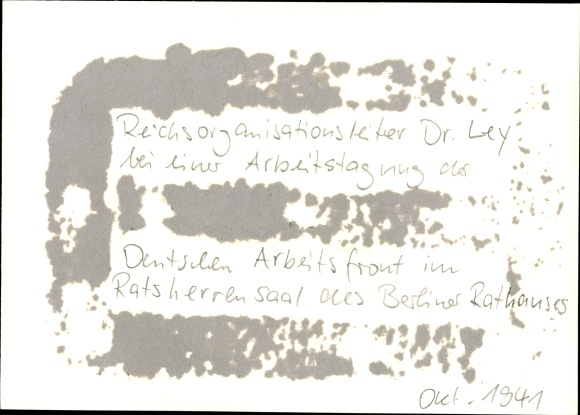 Reichsorganisationsleiter Dr. Ley
bei einer Arbeitstagung der
Deutschen Arbeitsfront im
Ratsherrensaal des Berliner Rathauses
Okt. 1941